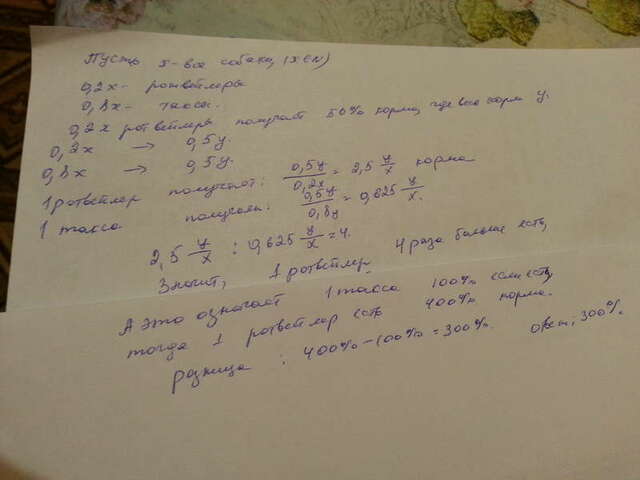 Пусть x - все собаки, (x∈N)
0,2x - ротвейлеры
0,8x - таксы.
0,2x ротвейлеры получает 50% корма, где всего корм y.
0,2x → 0,5y.
0,8x → 0,5y.
1 ротвейлер получает: 0,5y/0,2x = 2,5 y/x корма
1 такса получала: 0,5y/0,8y = 0,625 y/x.
2,5 y/x : 0,625 y/x = 4.
Значит, 1 ротвейлер 4 раза больше есть,
А это означает 1 такса 100% если есть,
тогда 1 ротвейлер есть 400% корма.
разница: 400% - 100% = 300%. Ответ: 300%